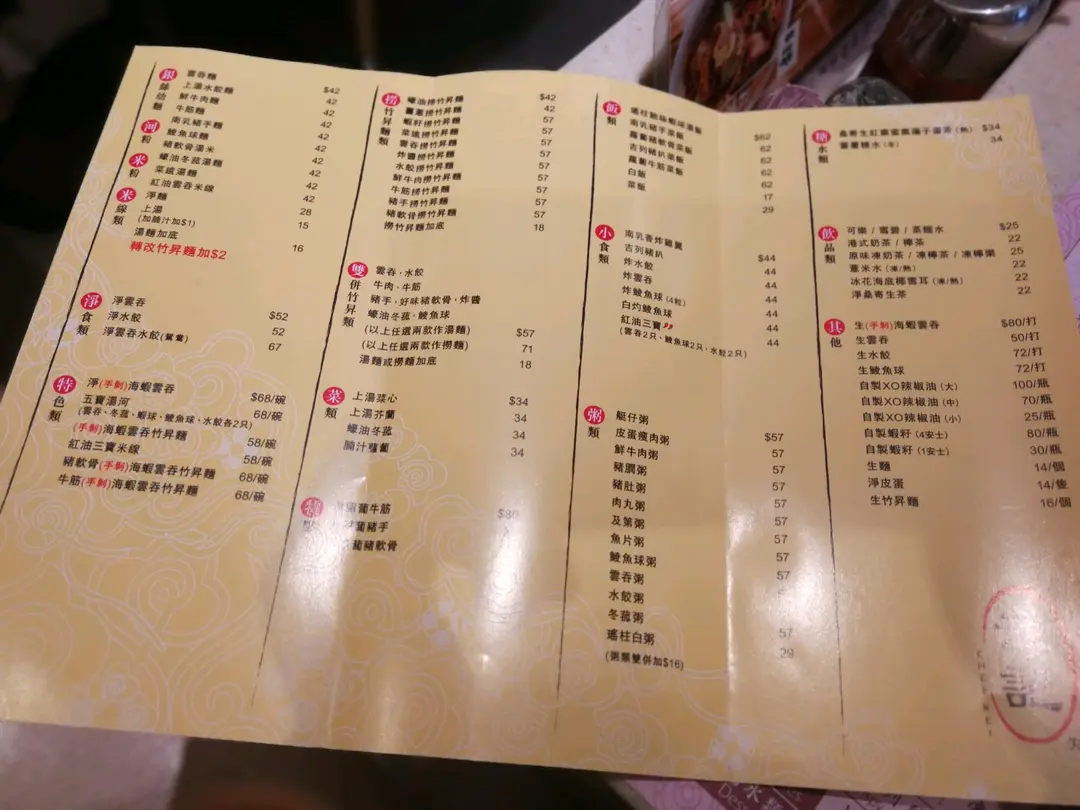 銀絲幼麵
河粉
米粉
米線類
雲吞麵 $42
上湯水餃麵 42
鮮牛肉麵 42
牛筋麵 42
南乳豬手麵 42
鯪魚球麵 42
豬軟骨湯米 42
蠔油冬菇湯麵 42
菜遠湯麵 42
紅油雲吞米線 42
淨麵 28
上湯 15
(加腩汁加$1)
湯麵加底 16
轉改竹昇麵加$2
淨食類
淨雲吞 $52
淨水餃 52
淨雲吞水餃(鴛鴦) 67
特色類
淨(手剝)海蝦雲吞 $68/碗
五寶湯河 68/碗
(雲吞、冬菇、蝦球、鯪魚球、水餃各2只)
(手剝)海蝦雲吞竹昇麵 58/碗
紅油三寶米線 58/碗
豬軟骨(手剝)海蝦雲吞竹昇麵 68/碗
牛筋(手剝)海蝦雲吞竹昇麵 68/碗
撈竹昇麵類
蠔油撈竹昇麵 $42
薑蔥撈竹昇麵 42
蝦籽撈竹昇麵 57
菜遠撈竹昇麵 57
雲吞撈竹昇麵 57
炸醬撈竹昇麵 57
水餃撈竹昇麵 57
鮮牛肉撈竹昇麵 57
牛筋撈竹昇麵 57
豬手撈竹昇麵 57
豬軟骨撈竹昇麵 57
撈竹昇麵加底 18
雙併竹昇類
雲吞．水餃
牛肉．牛筋
豬手．好味豬軟骨．炸醬
蠔油冬菇．鯪魚球
(以上任選兩款作湯麵) $57
(以上任選兩款作撈麵) 71
湯麵或撈麵加底 18
菜類
上湯菜心 $34
上湯芥蘭 34
蠔油冬菇 34
腩汁蘿蔔 34
蔔牛筋 $80
蔔豬手
蔔豬軟骨
飯類
南乳豬手菜飯 $62
蘿蔔豬軟骨菜飯 62
吉列豬扒菜飯 62
蘿蔔牛筋菜飯 62
白飯 17
菜飯 29
小食類
南乳香炸雞翼 $44
吉列豬扒 44
炸水餃 44
炸雲吞 44
炸鯪魚球(4粒) 44
白灼鯪魚球 44
紅油三寶 44
(雲吞2只、鯪魚球2只、水餃2只)
粥類
艇仔粥 $57
皮蛋瘦肉粥 57
鮮牛肉粥 57
豬膶粥 57
豬肚粥 57
肉丸粥 57
及第粥 57
魚片粥 57
鯪魚球粥 57
雲吞粥
水餃粥
冬菇粥 57
瑤柱白粥 29
(粥類雙併加$16)
糖水類
桑寄生紅棗蜜棗蓮子蛋茶(熱) $34
薑薯糖水(冬) 34
飲品類
可樂 / 雪碧 / 蒸餾水 $25
港式奶茶 / 檸茶 22
原味凍奶茶 / 凍檸茶 / 凍檸樂 25
薏米水(凍/熱) 22
冰花海底椰雪耳(凍/熱) 22
淨桑寄生茶 22
其他
生(手剝)海蝦雲吞 $80/打
生雲吞 50/打
生水餃 72/打
生鯪魚球 72/打
自製XO辣椒油(大) 100/瓶
自製XO辣椒油(中) 70/瓶
自製XO辣椒油(小) 25/瓶
自製蝦籽(4安士) 80/瓶
自製蝦籽(1安士) 30/瓶
生麵 14/個
淨皮蛋 14/隻
生竹昇麵 16/個
CHEE KEI